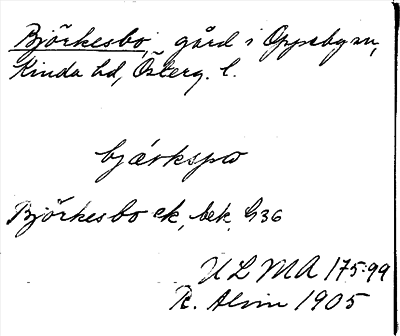 Björkesbo, gård i Oppeby sn,
Kinda hd, Österg. l.
bjärkspo
Björkesbo ek, bek, G36
ULMA 175:99
R. Alvin 1905